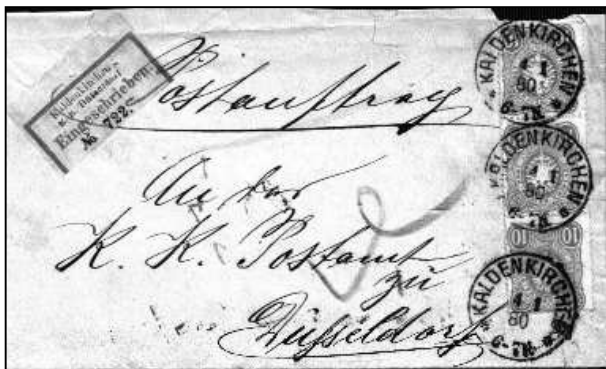 Kaldenkirchen
Eingeschrieben.
№ 722.
Postauftrag
An das
K. K. Postamt
zu
Düsseldorf
KALDENKIRCHEN
4 1
80
6-7N.
KALDENKIRCHEN
4 1
80
6-7N.
10 10
KALDENKIRCHEN
4 1
80
6-7N.